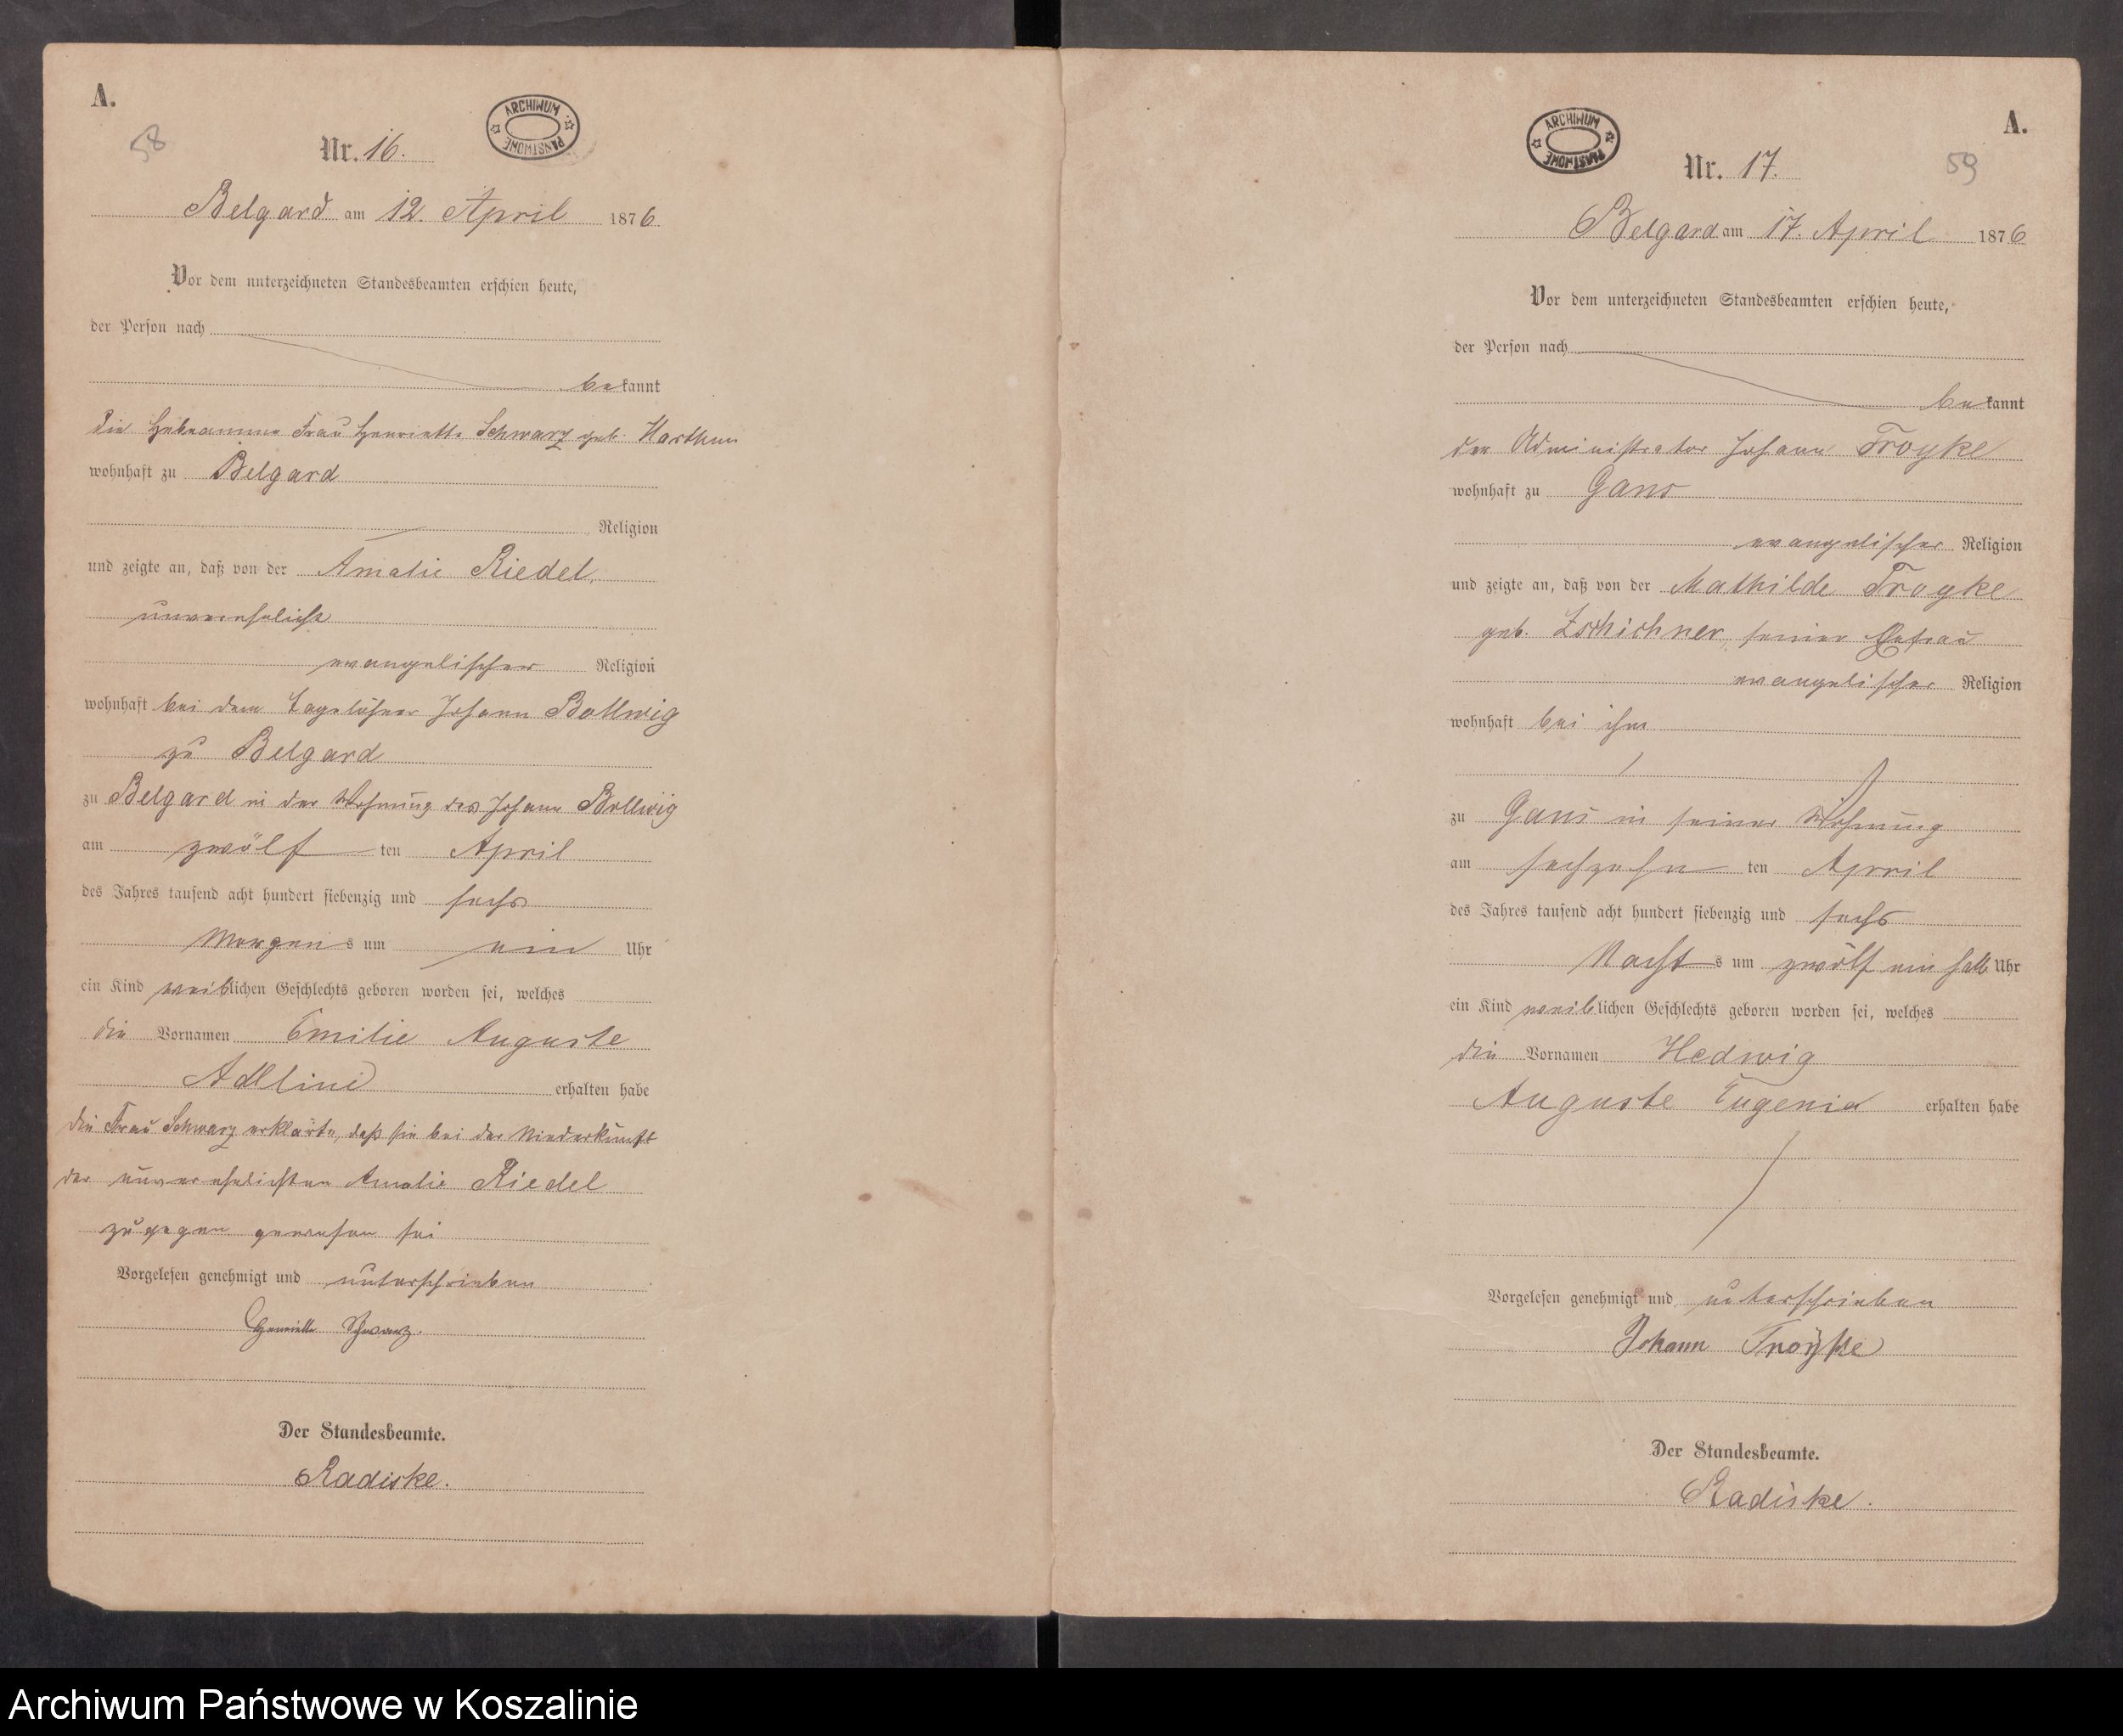 A.
58
ARCHIWUM PAŃSTWOWE
Nr. 16.
Belgard am 12. April 1876
Vor dem unterzeichneten Standesbeamten erschien heute,
der Person nach
bekannt
die Hebeamme Frau Henriette Schwarz geb. Harthun
wohnhaft zu Belgard
Religion
und zeigte an, daß von der Amalie Riedel,
unverehelicht
evangelischer Religion
wohnhaft bei dem Tagelöhner Johann Bollwig
zu Belgard
zu Belgard in der Wohnung des Johann Bollwig
am zwölf ten April
des Jahres tausend acht hundert siebenzig und sechs
Morgens um ein Uhr
ein Kind weiblichen Geschlechts geboren worden sei, welches
die Vornamen Emilie Auguste
erhalten habe
die Frau Schwarz erklärte, daß sie bei der Niederkunft
der unverehelichten Amalie Riedel
zugegen gewesen sei
Vorgelesen genehmigt und unterschrieben
Henriette Schwarz.
Der Standesbeamte.
Radiske.
ARCHIWUM PAŃSTWOWE
A.
59
Nr. 17.
Belgard am 17. April 1876
Vor dem unterzeichneten Standesbeamten erschien heute,
der Person nach
bekannt
der Administrator Johann Troyke
wohnhaft zu Gans
evangelischer Religion
und zeigte an, daß von der Mathilde Troyke
geb. Zschichner, seiner Ehefrau
evangelischer Religion
wohnhaft bei ihm
zu Gans in seiner Wohnung
am sechzehn ten April
des Jahres tausend acht hundert siebenzig und sechs
Nachts um zwölf ein halb Uhr
ein Kind weiblichen Geschlechts geboren worden sei, welches
die Vornamen Hedwig
Auguste Eugenia erhalten habe
Vorgelesen genehmigt und unterschrieben
Johann Troÿke
Der Standesbeamte.
Radiske.
Archiwum Państwowe w Koszalinie